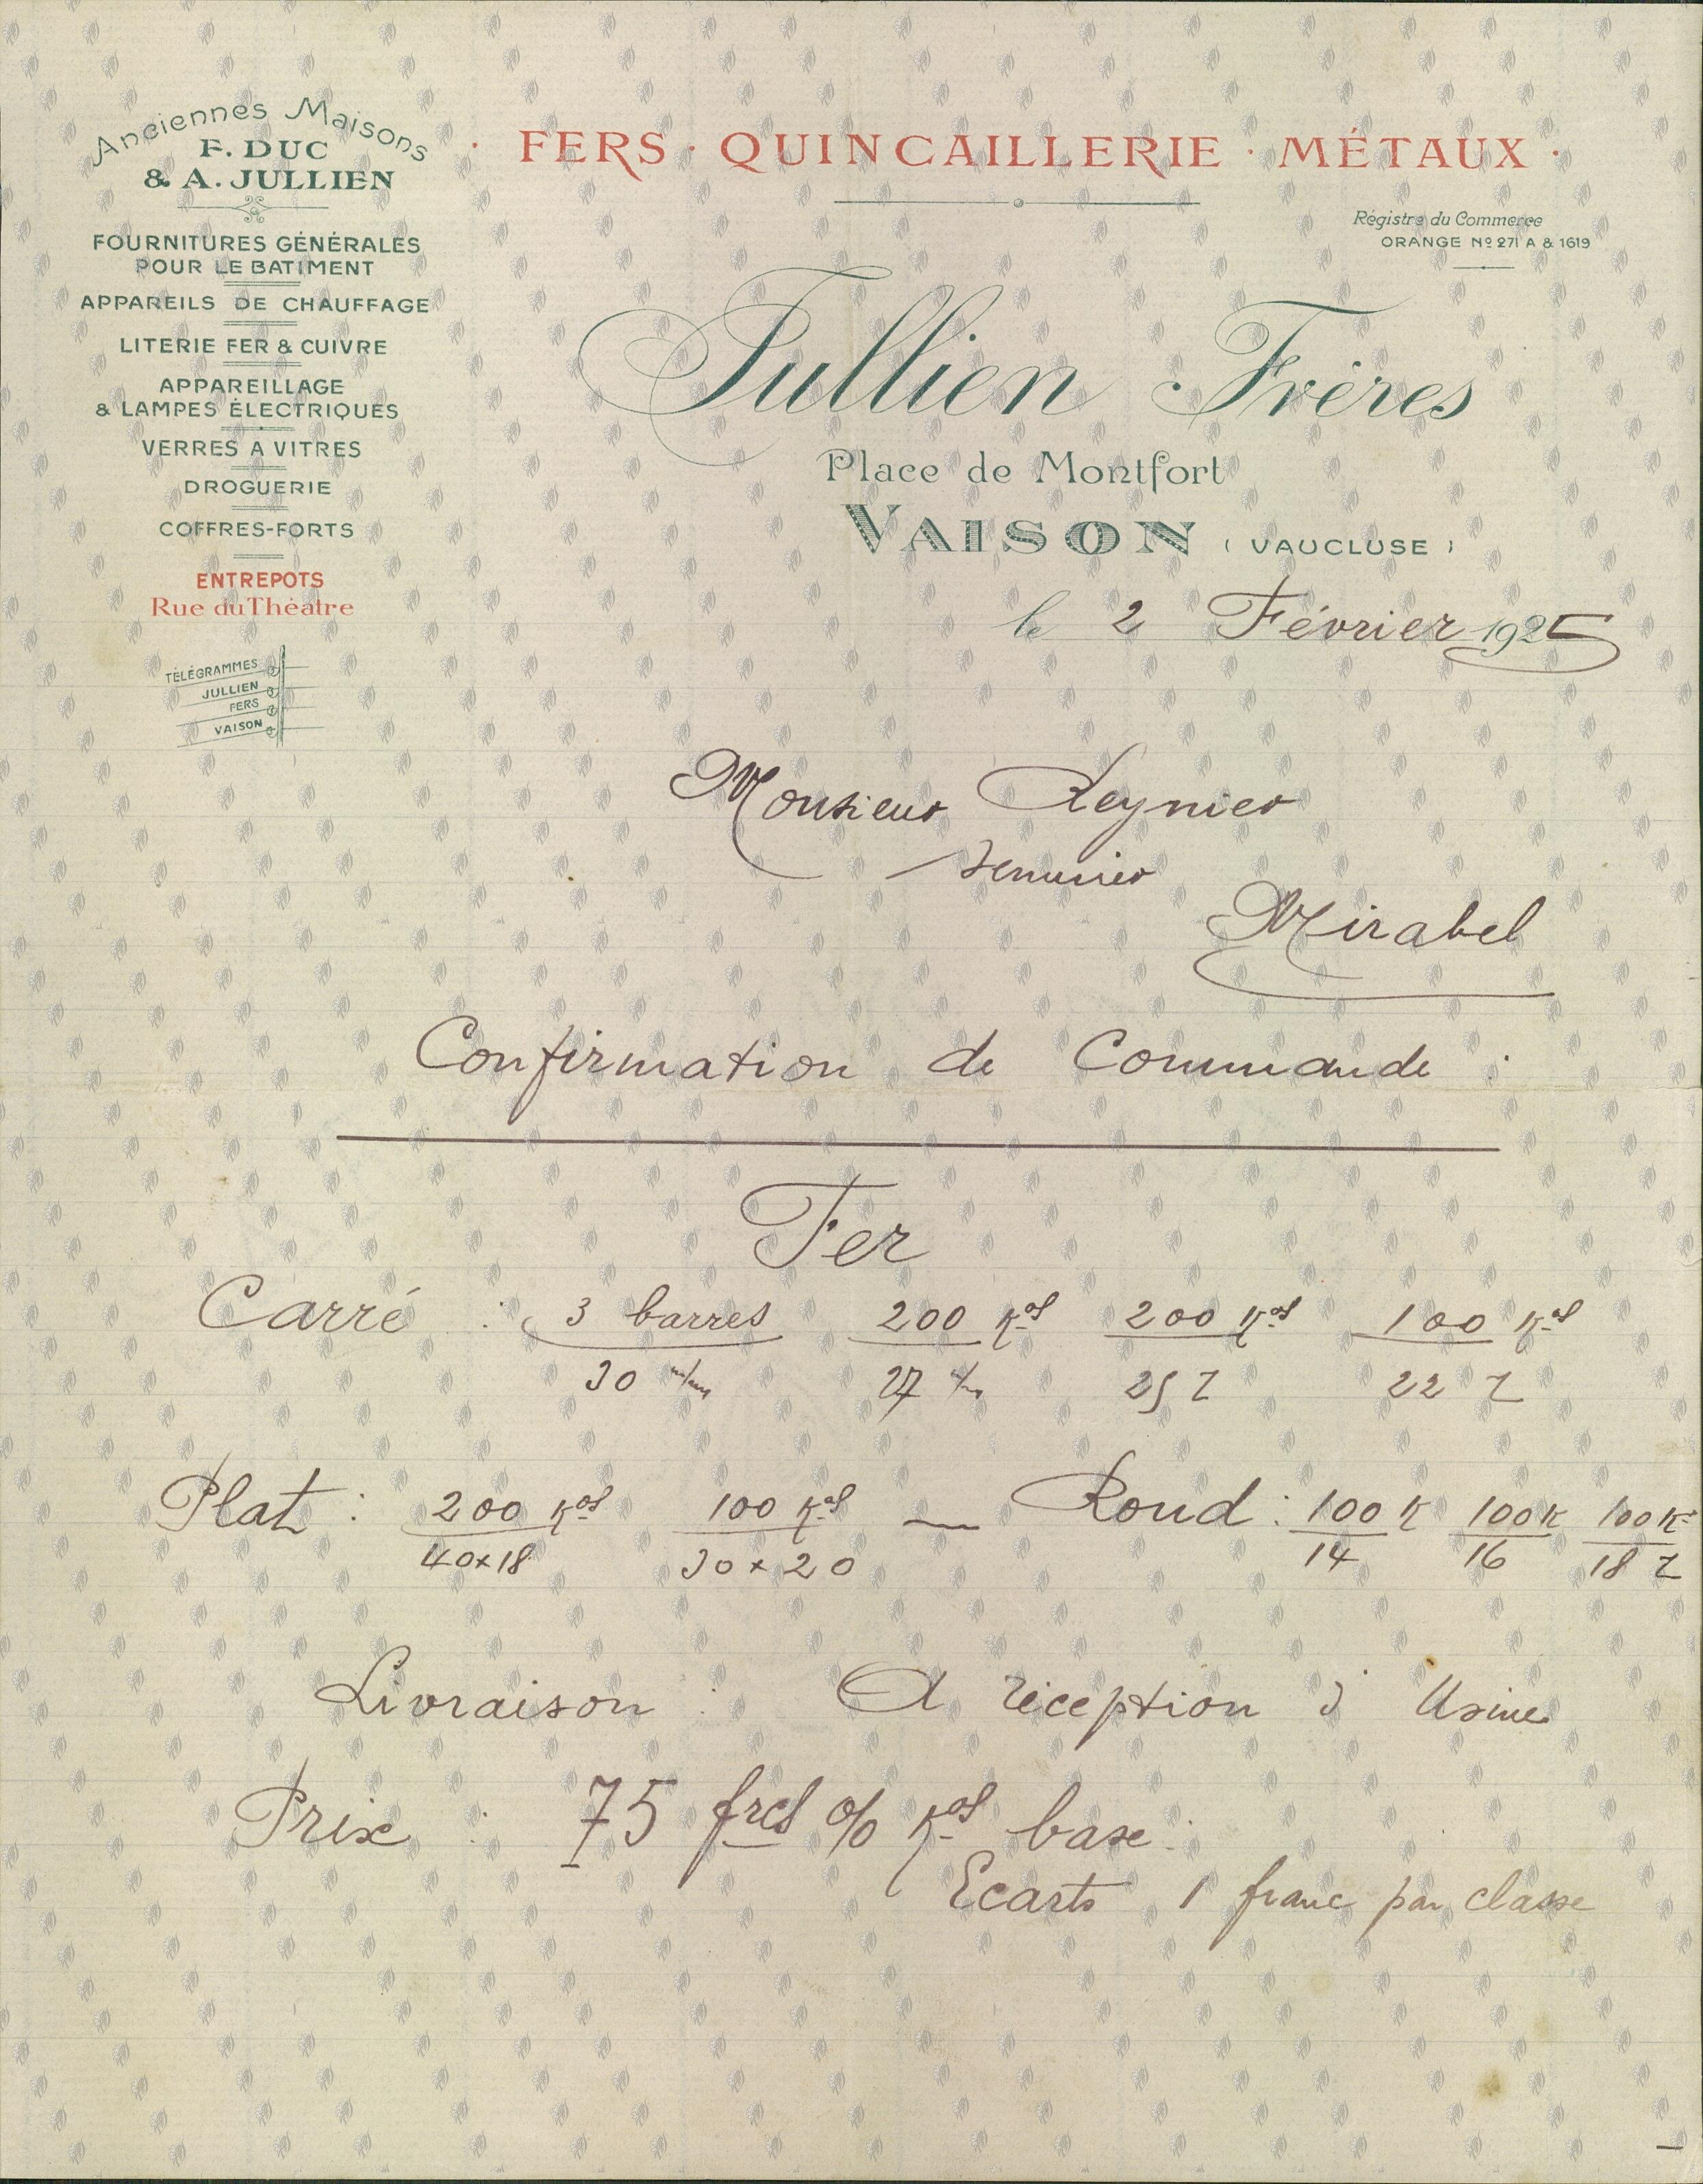 Anciennes Maisons
F. DUC
& A. JULLIEN
FOURNITURES GÉNÉRALES
POUR LE BATIMENT
APPAREILS DE CHAUFFAGE
LITERIE FER & CUIVRE
APPAREILLAGE
& LAMPES ÉLECTRIQUES
VERRES A VITRES
DROGUERIE
COFFRES-FORTS
ENTREPOTS
Rue du Théatre
TÉLÉGRAMMES
JULLIEN
FERS
VAISON
· FERS · QUINCAILLERIE · MÉTAUX ·
Régistre du Commerce
ORANGE Nº 271 A & 1619
Jullien Frères
Place de Montfort
VAISON (VAUCLUSE)
le 2 Février 1925
Monsieur Reynier
Serrurier
Mirabel
Confirmation de Commande :
Fer
Carré : 3 barres 200 Kos 200 Kos 100 Kos
30 m/m 27 m/m 25 27 22
Plat : 200 Kos 100 Kos — Rond : 100 K 100 K 100 K
40x18 30 x 20 14 16 18
Livraison : A réception d' Usine
Prix : 75 frcs % Kos base :
Ecarts 1 franc par classe